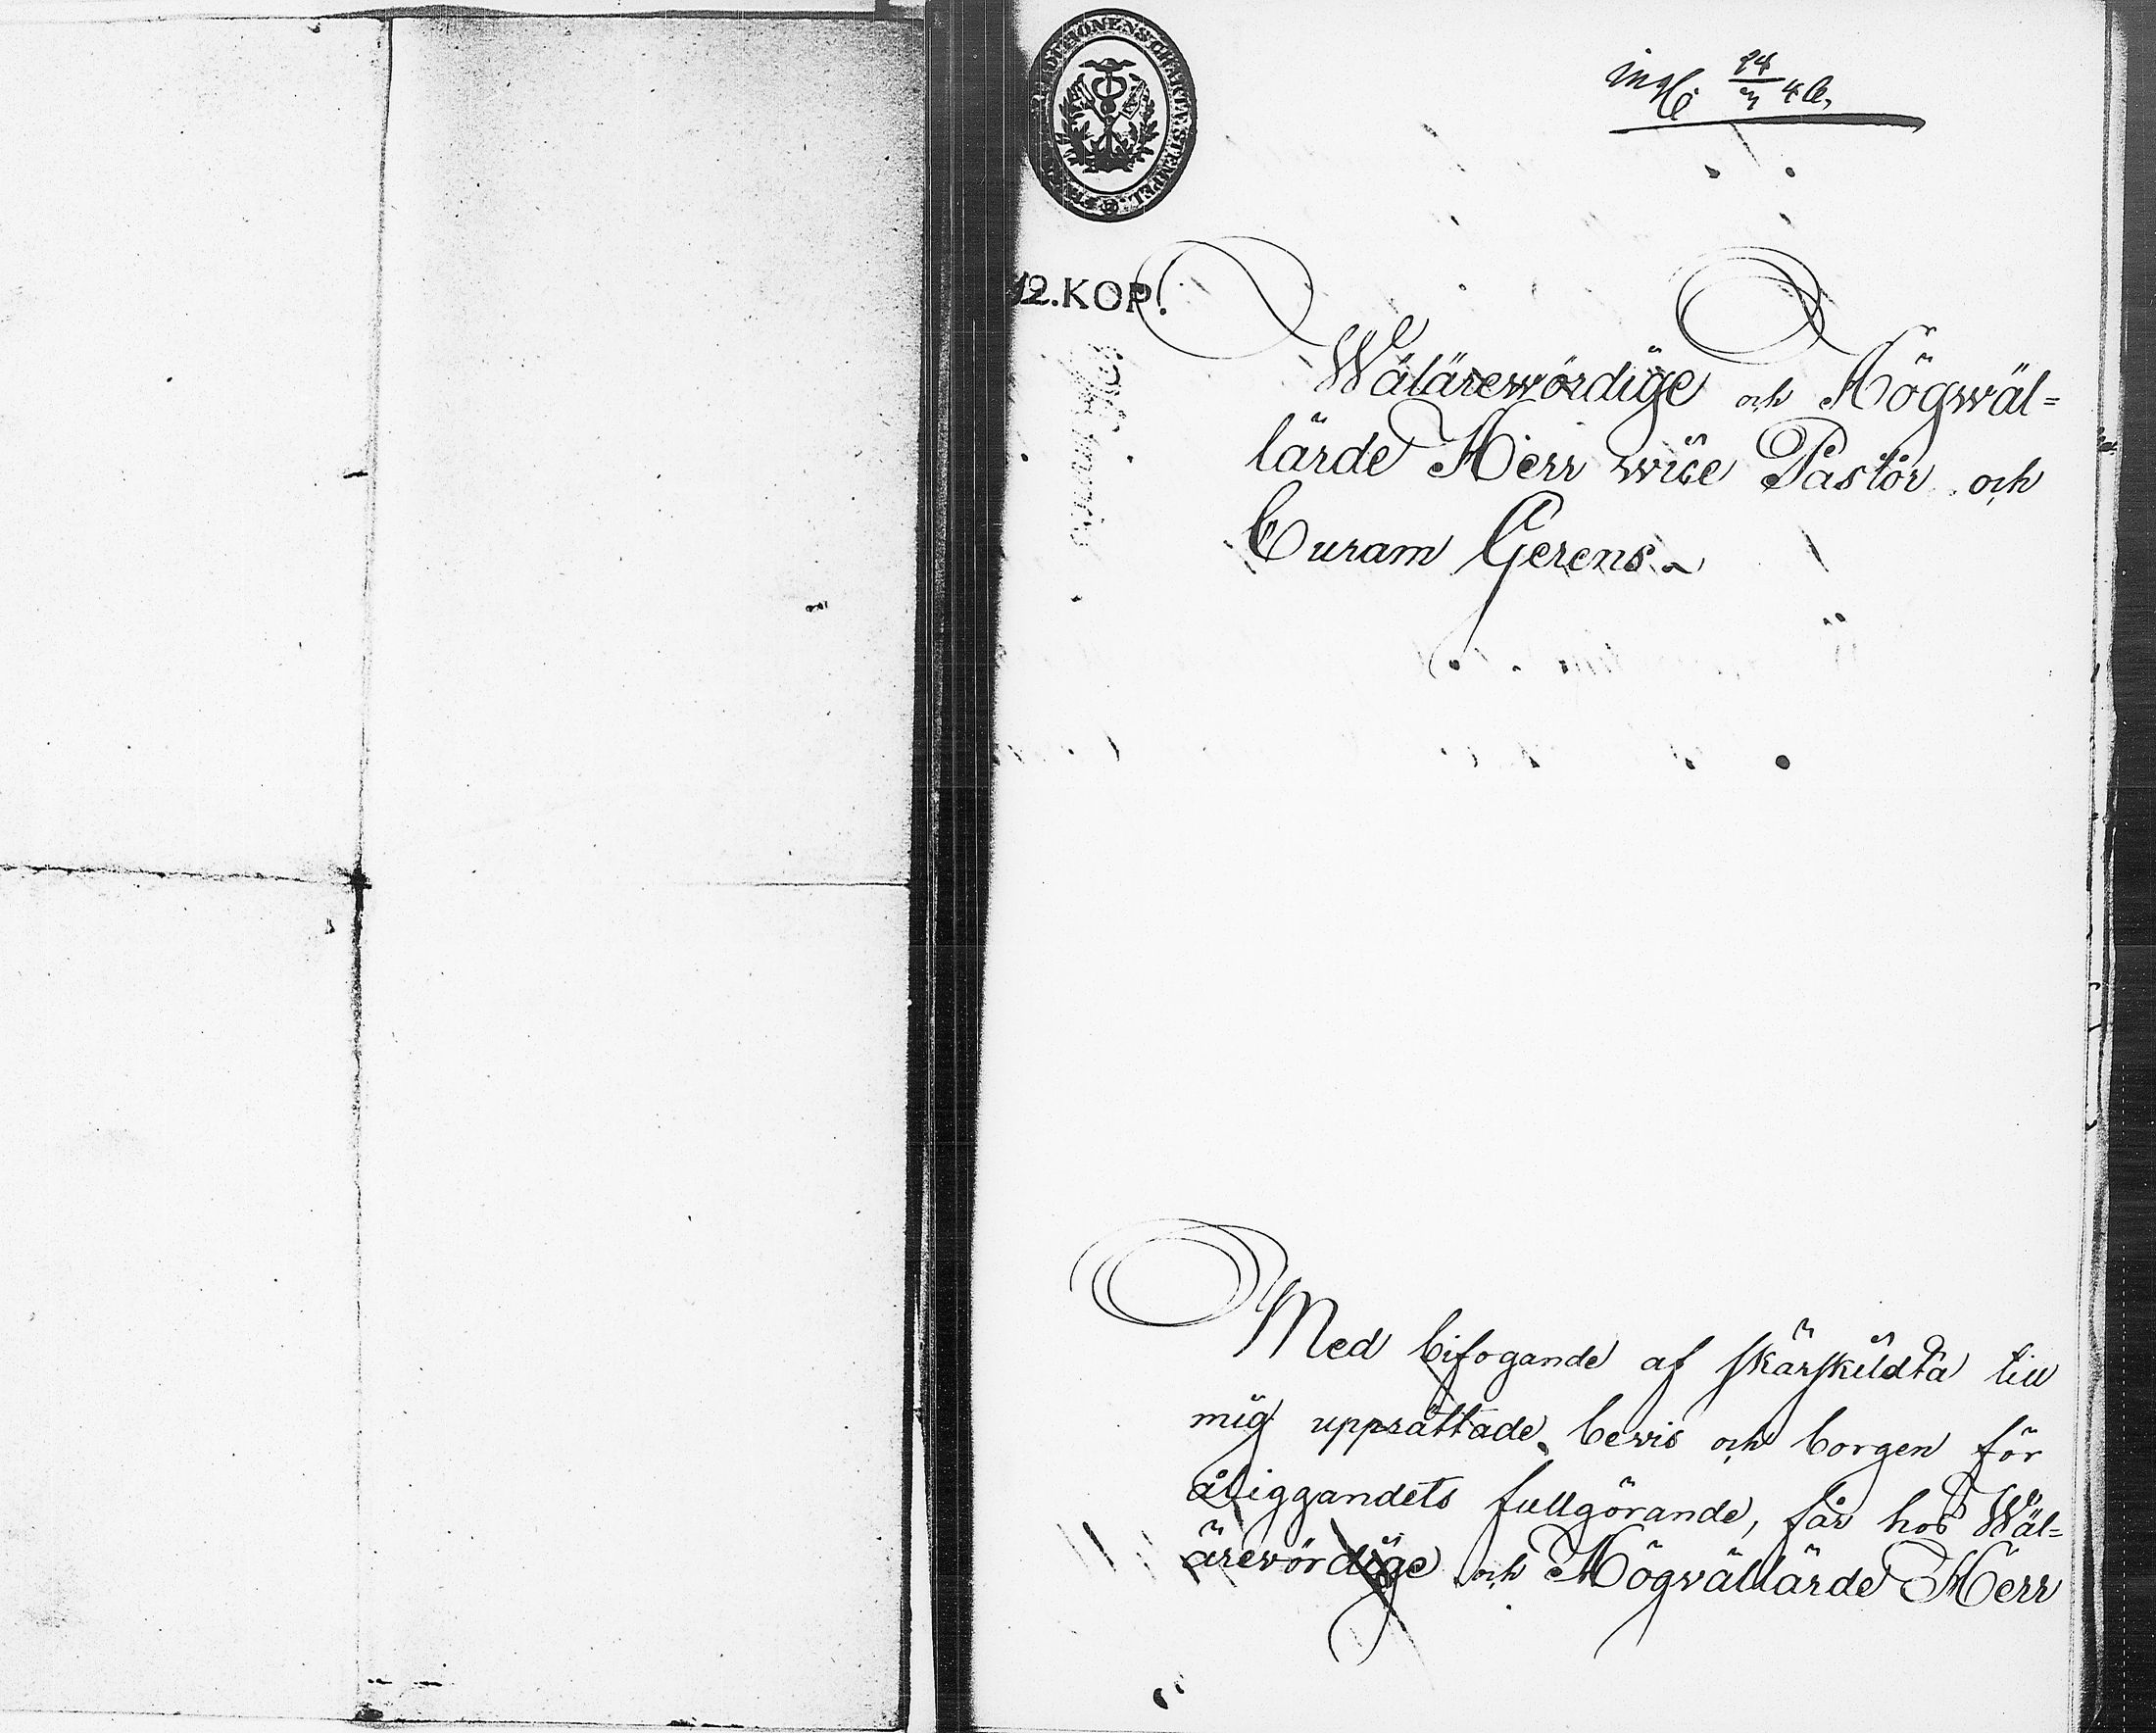 24/3 46.
12.KOP.
Wälärewördige och Högwäl=
lärde Herr wice Pastor och
Curam Gerens.
Med bifogande af skärskildta till
mig upprättade bevis och borgen för
åliggandets fullgörande, får hos Wäl=
ärevördige och Högvällärde Herr